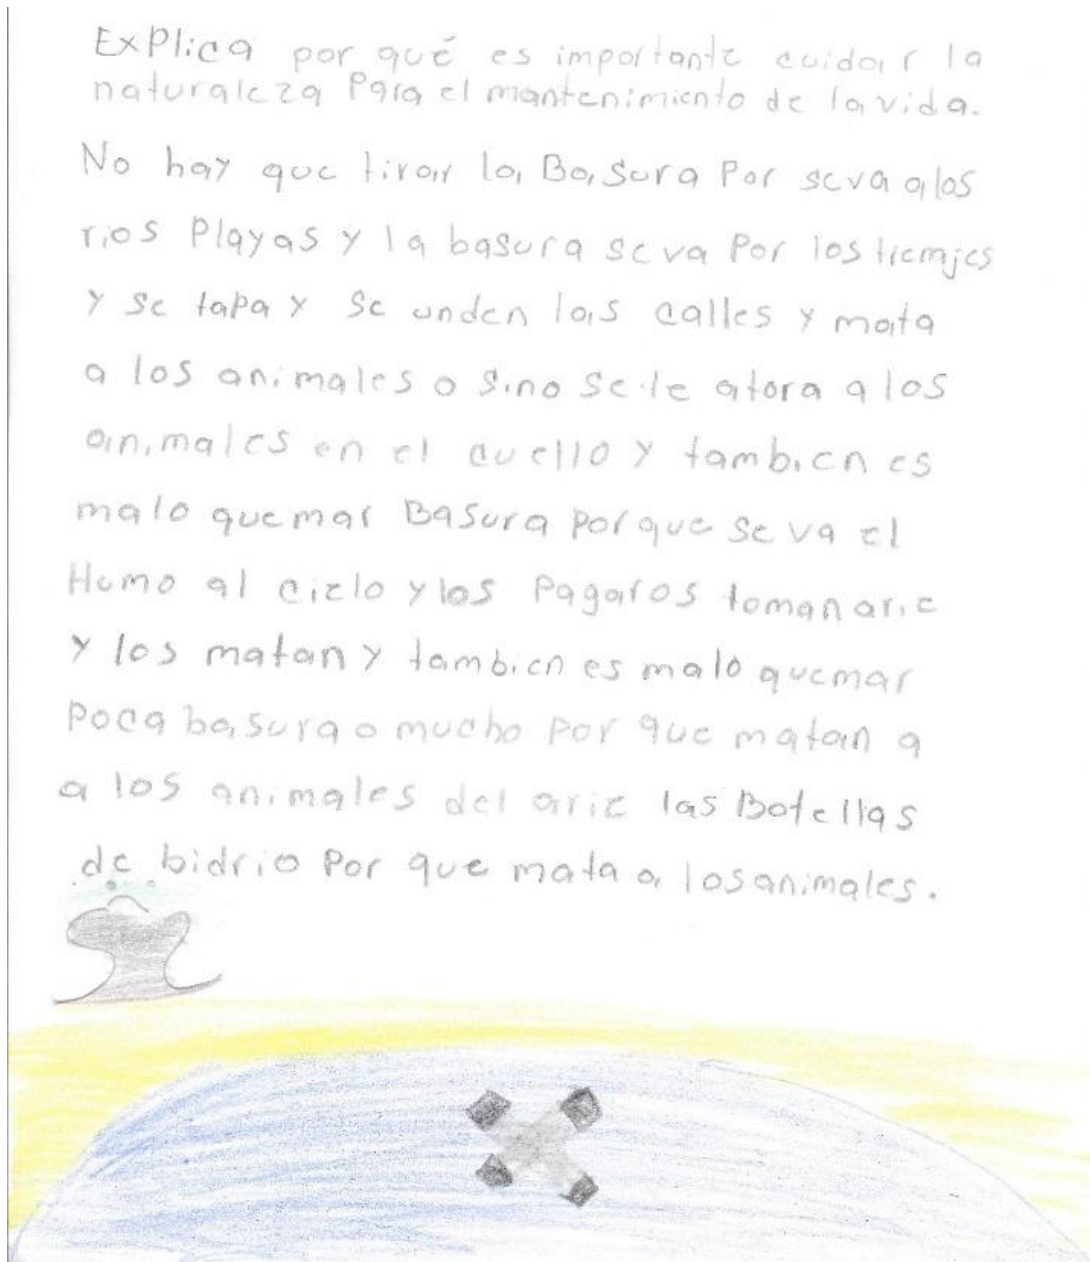 Explica por qué es importante cuidar la
naturaleza Para el mantenimiento de la vida.
No hay que tirar la Basura Por se va a los
rios Playas y la basura se va Por los
y se tapa y se unden las calles y mata
a los animales o sino se le atora a los
animales en el cuello y tambien es
malo quemar Basura porque se va el
Humo al cielo y los Pagaros toman arie
y los matan y tambien es malo quemar
Poca basura o mucho por que matan a
a los animales del arie las Botellas
de bidrio Por que mata a los animales.